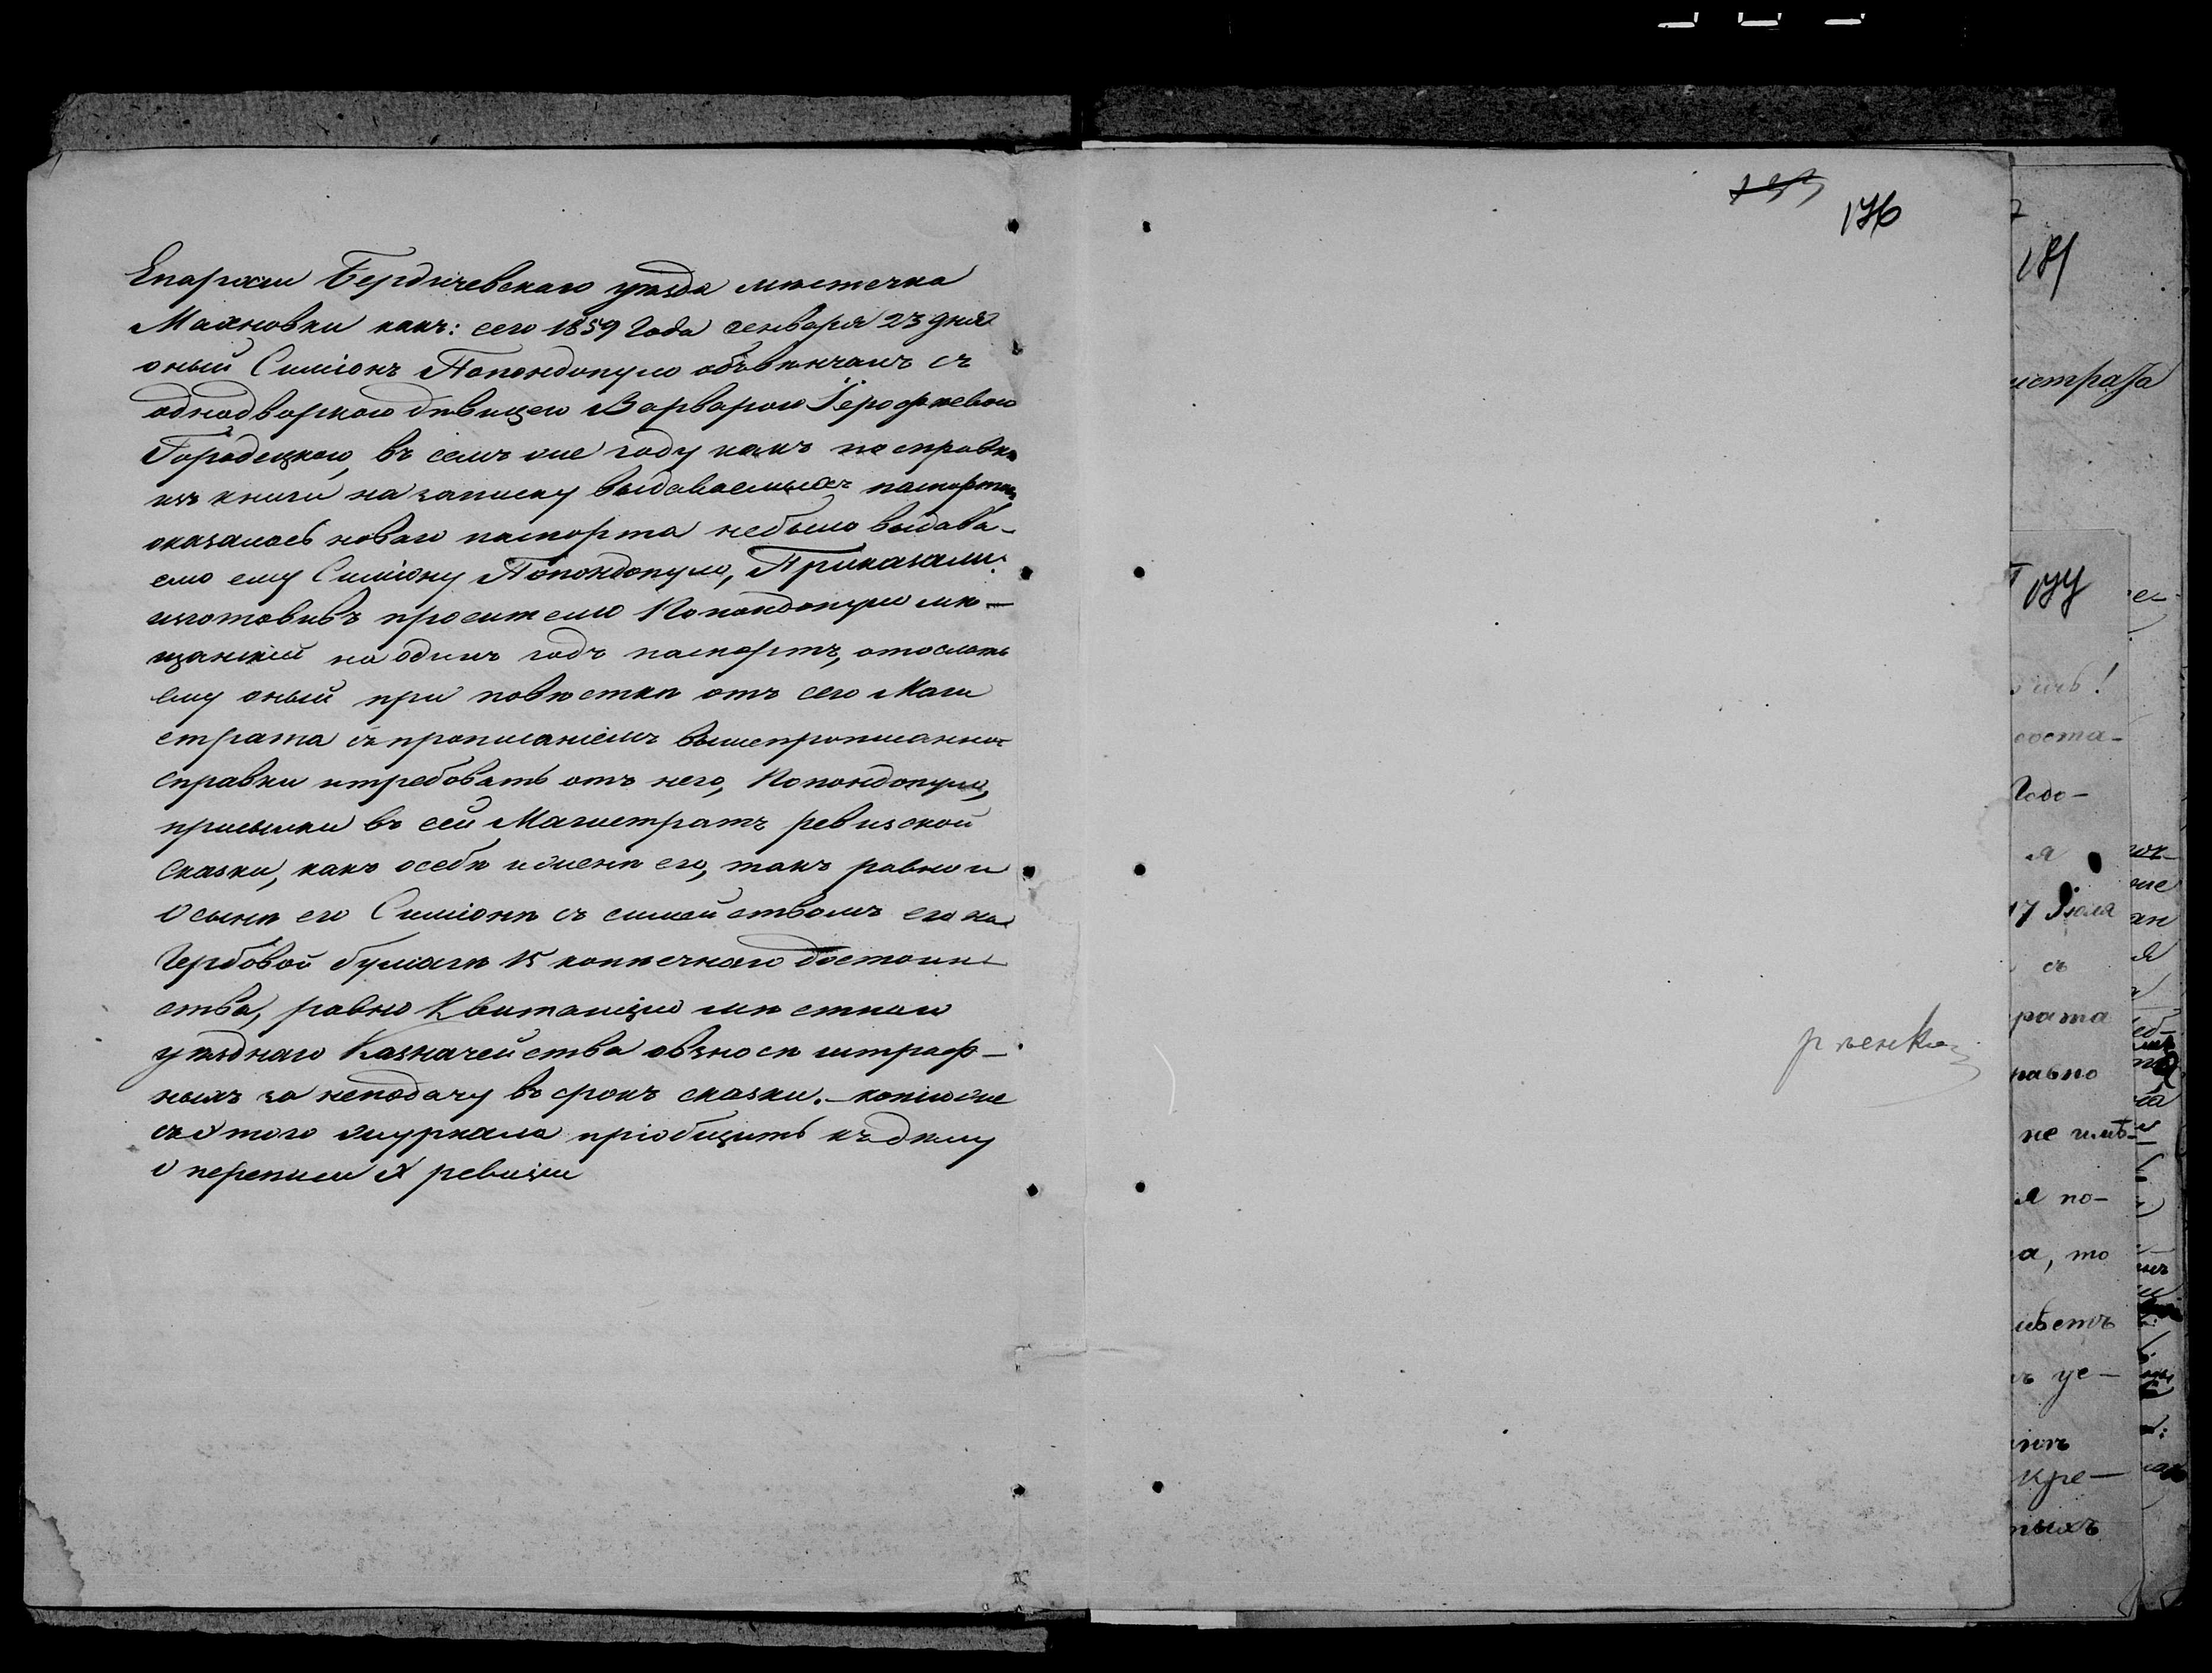 Епархіи Бердичевскаго уѣзда мѣстечка
Махновки какъ: сего 1859 Года генваря 23 дня
оный Симіонъ Попондопуло обвѣнчанъ съ
однодворкою дѣвицею Варварою Іерофѣевою
Городецкою, въ семъ же году какъ по справкѣ
изъ книги на записку выдаваемыхъ паспортовъ
оказалось новаго паспорта небыло выдава-
емо ему Симіону Попондопуло, Приказали:
изготовивъ просителю Попондопуло мѣ-
щанскій на одинъ годъ паспортъ, отослать
ему оный при повѣсткѣ отъ сего Маги
страта съ прописаніемъ вышепрописанной
справки итребовать отъ него, Попондопуло,
присылки въ сей Магистратъ ревизской
сказки, какъ осебѣ иженѣ его, такъ равно и
О сынѣ его Симіонѣ съ симействомъ его на
Гербовой бумагѣ 15 копѣечнаго достоин-
ства, равно Квитанцію мѣстнаго
уѣзднаго Казначейства овзносѣ штраф-
ныхъ за неподачу въ срокъ сказки. – копію же
съ этого журнала пріобщить къ дѣлу
О переписи X ревизіи
176
181
истрата
ичь!
соста-
Годо-
я
17 Іюля
съ
рата
равно
не имѣ-
я по-
а, то
имѣетъ
ъ уе-
кре-
ныхъ